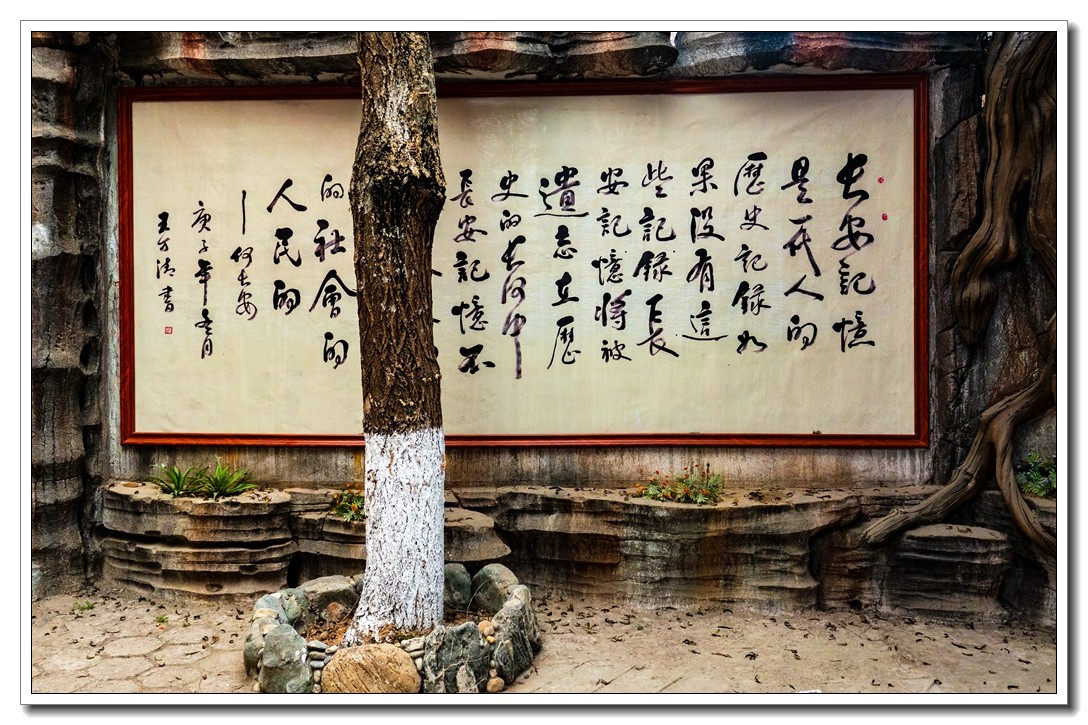 长安記憶
是一代人的
歷史記録如
果没有這
些記録长
安記憶將被
遺忘在歷
史的长河中
長安記憶不
的社會的
人民的
—何长安
庚子年冬月
王万清書